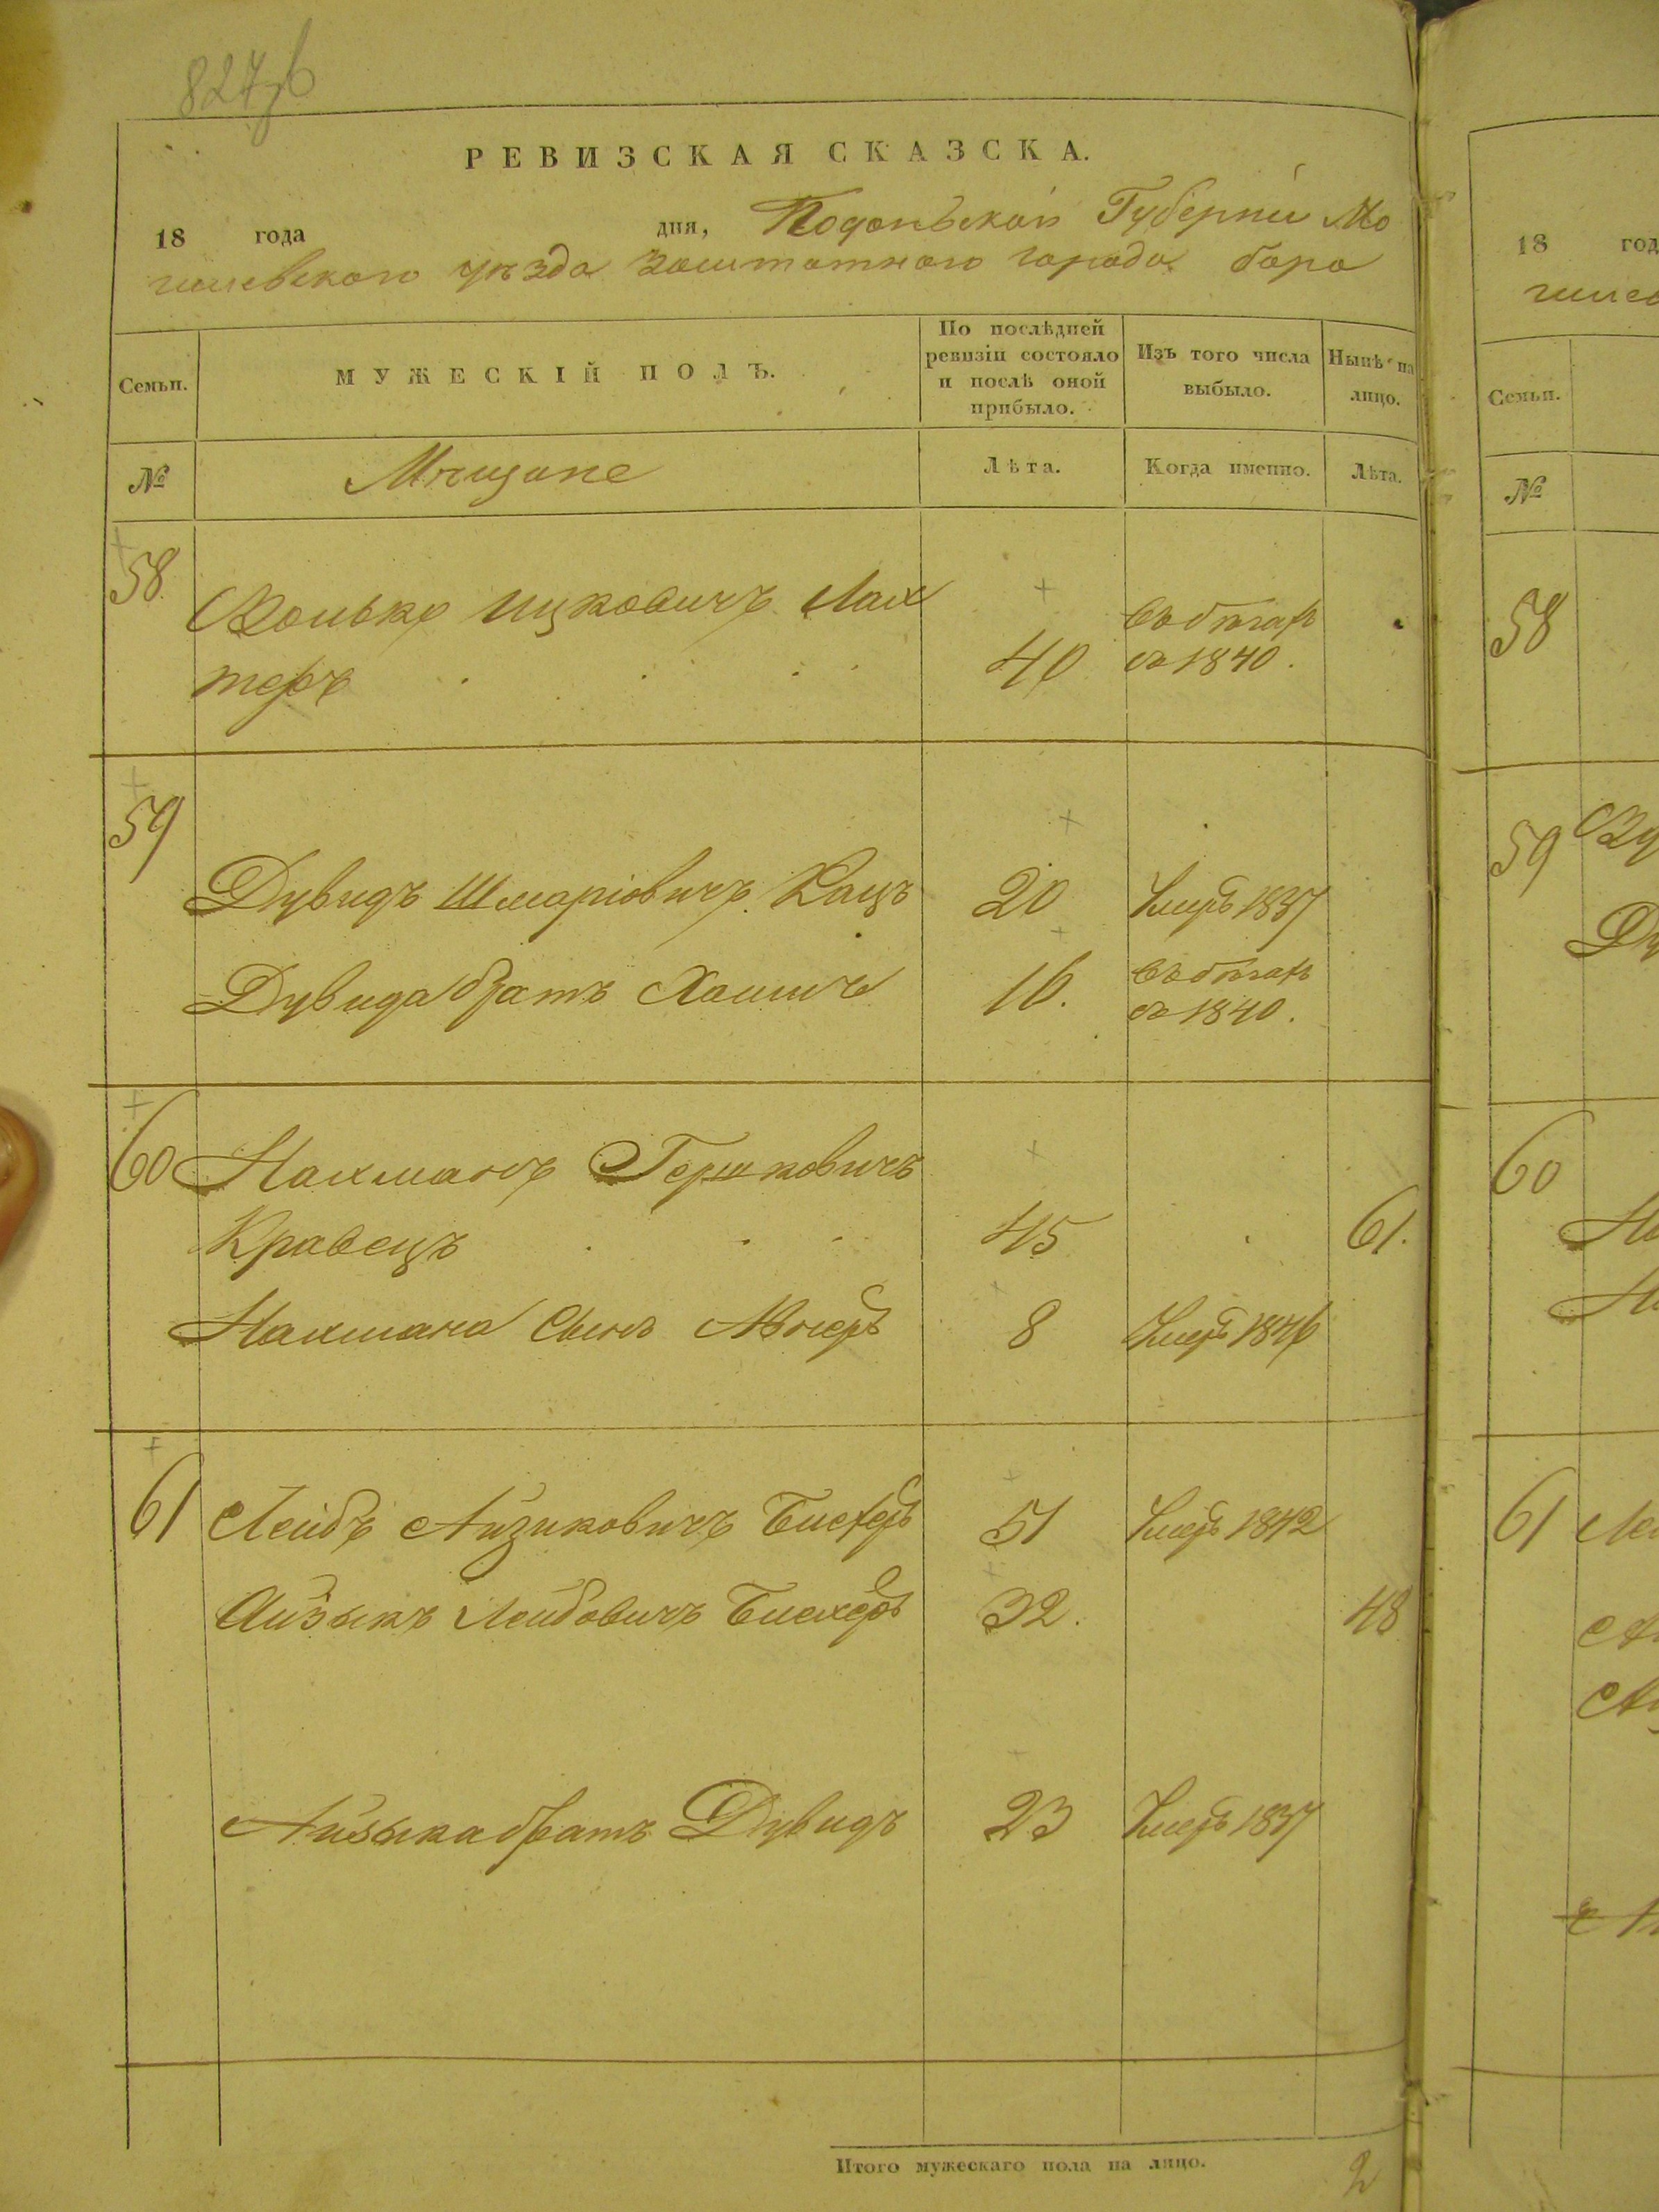 827об
РЕВИЗСКАЯ СКАЗСКА.
18 года дня, Подольской Губерніи Мо
гилевского уѣзда Заштатного города бара
Семьи. МУЖЕСКІЙ ПОЛЪ. По послѣдней ревизіи состояло и послѣ оной прибыло. Изъ того числа выбыло. Нынѣ на лицо.
№ Мещане Лѣта. Когда именно. Лѣта.
58 Волько Ицковичъ Лах
теръ 40 въ бѣгахъ съ 1840.
59
Дувидъ Шмаріовичъ Кацъ 20 Умеръ 1837
Дувида братъ Хаимъ 16. въ бѣгахъ съ 1840.
60 Нахманъ Гершковичъ
Кравецъ 45 61.
Нахмана Сынъ 8 Умеръ 1846
61 Лейбъ Айзиковичъ 51 Умеръ 1842
Айзыкъ Лейбовичъ 32. 48
Айзыка братъ Дувидъ 23 Умеръ 1837
Итого мужескаго пола на лицо. 2
18 год
гилев
Семьи.
№
58
59
60
61